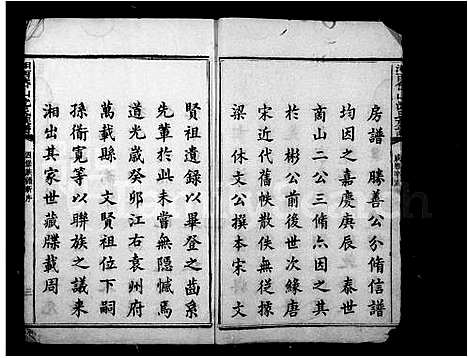 房譜 勝善公分脩信譜
均因之嘉慶庚辰 泰世
啇山二公三脩亦因之其
於 彬公前後世次緣唐
宋近代舊帙散佚無從據
梁 休文公撰本宋 文
賢祖遺錄以畢登之啚系
先輩於此未嘗無隱憾焉
道光歲癸卯江右袁州府
萬載縣 文賢祖位下嗣
孫衡寬等以聯族之議來
湘出其家世藏牒載周